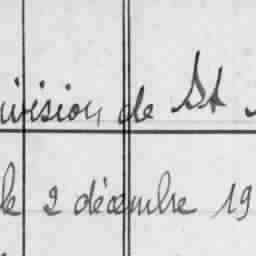 ivision de St
le 2 décembre 19